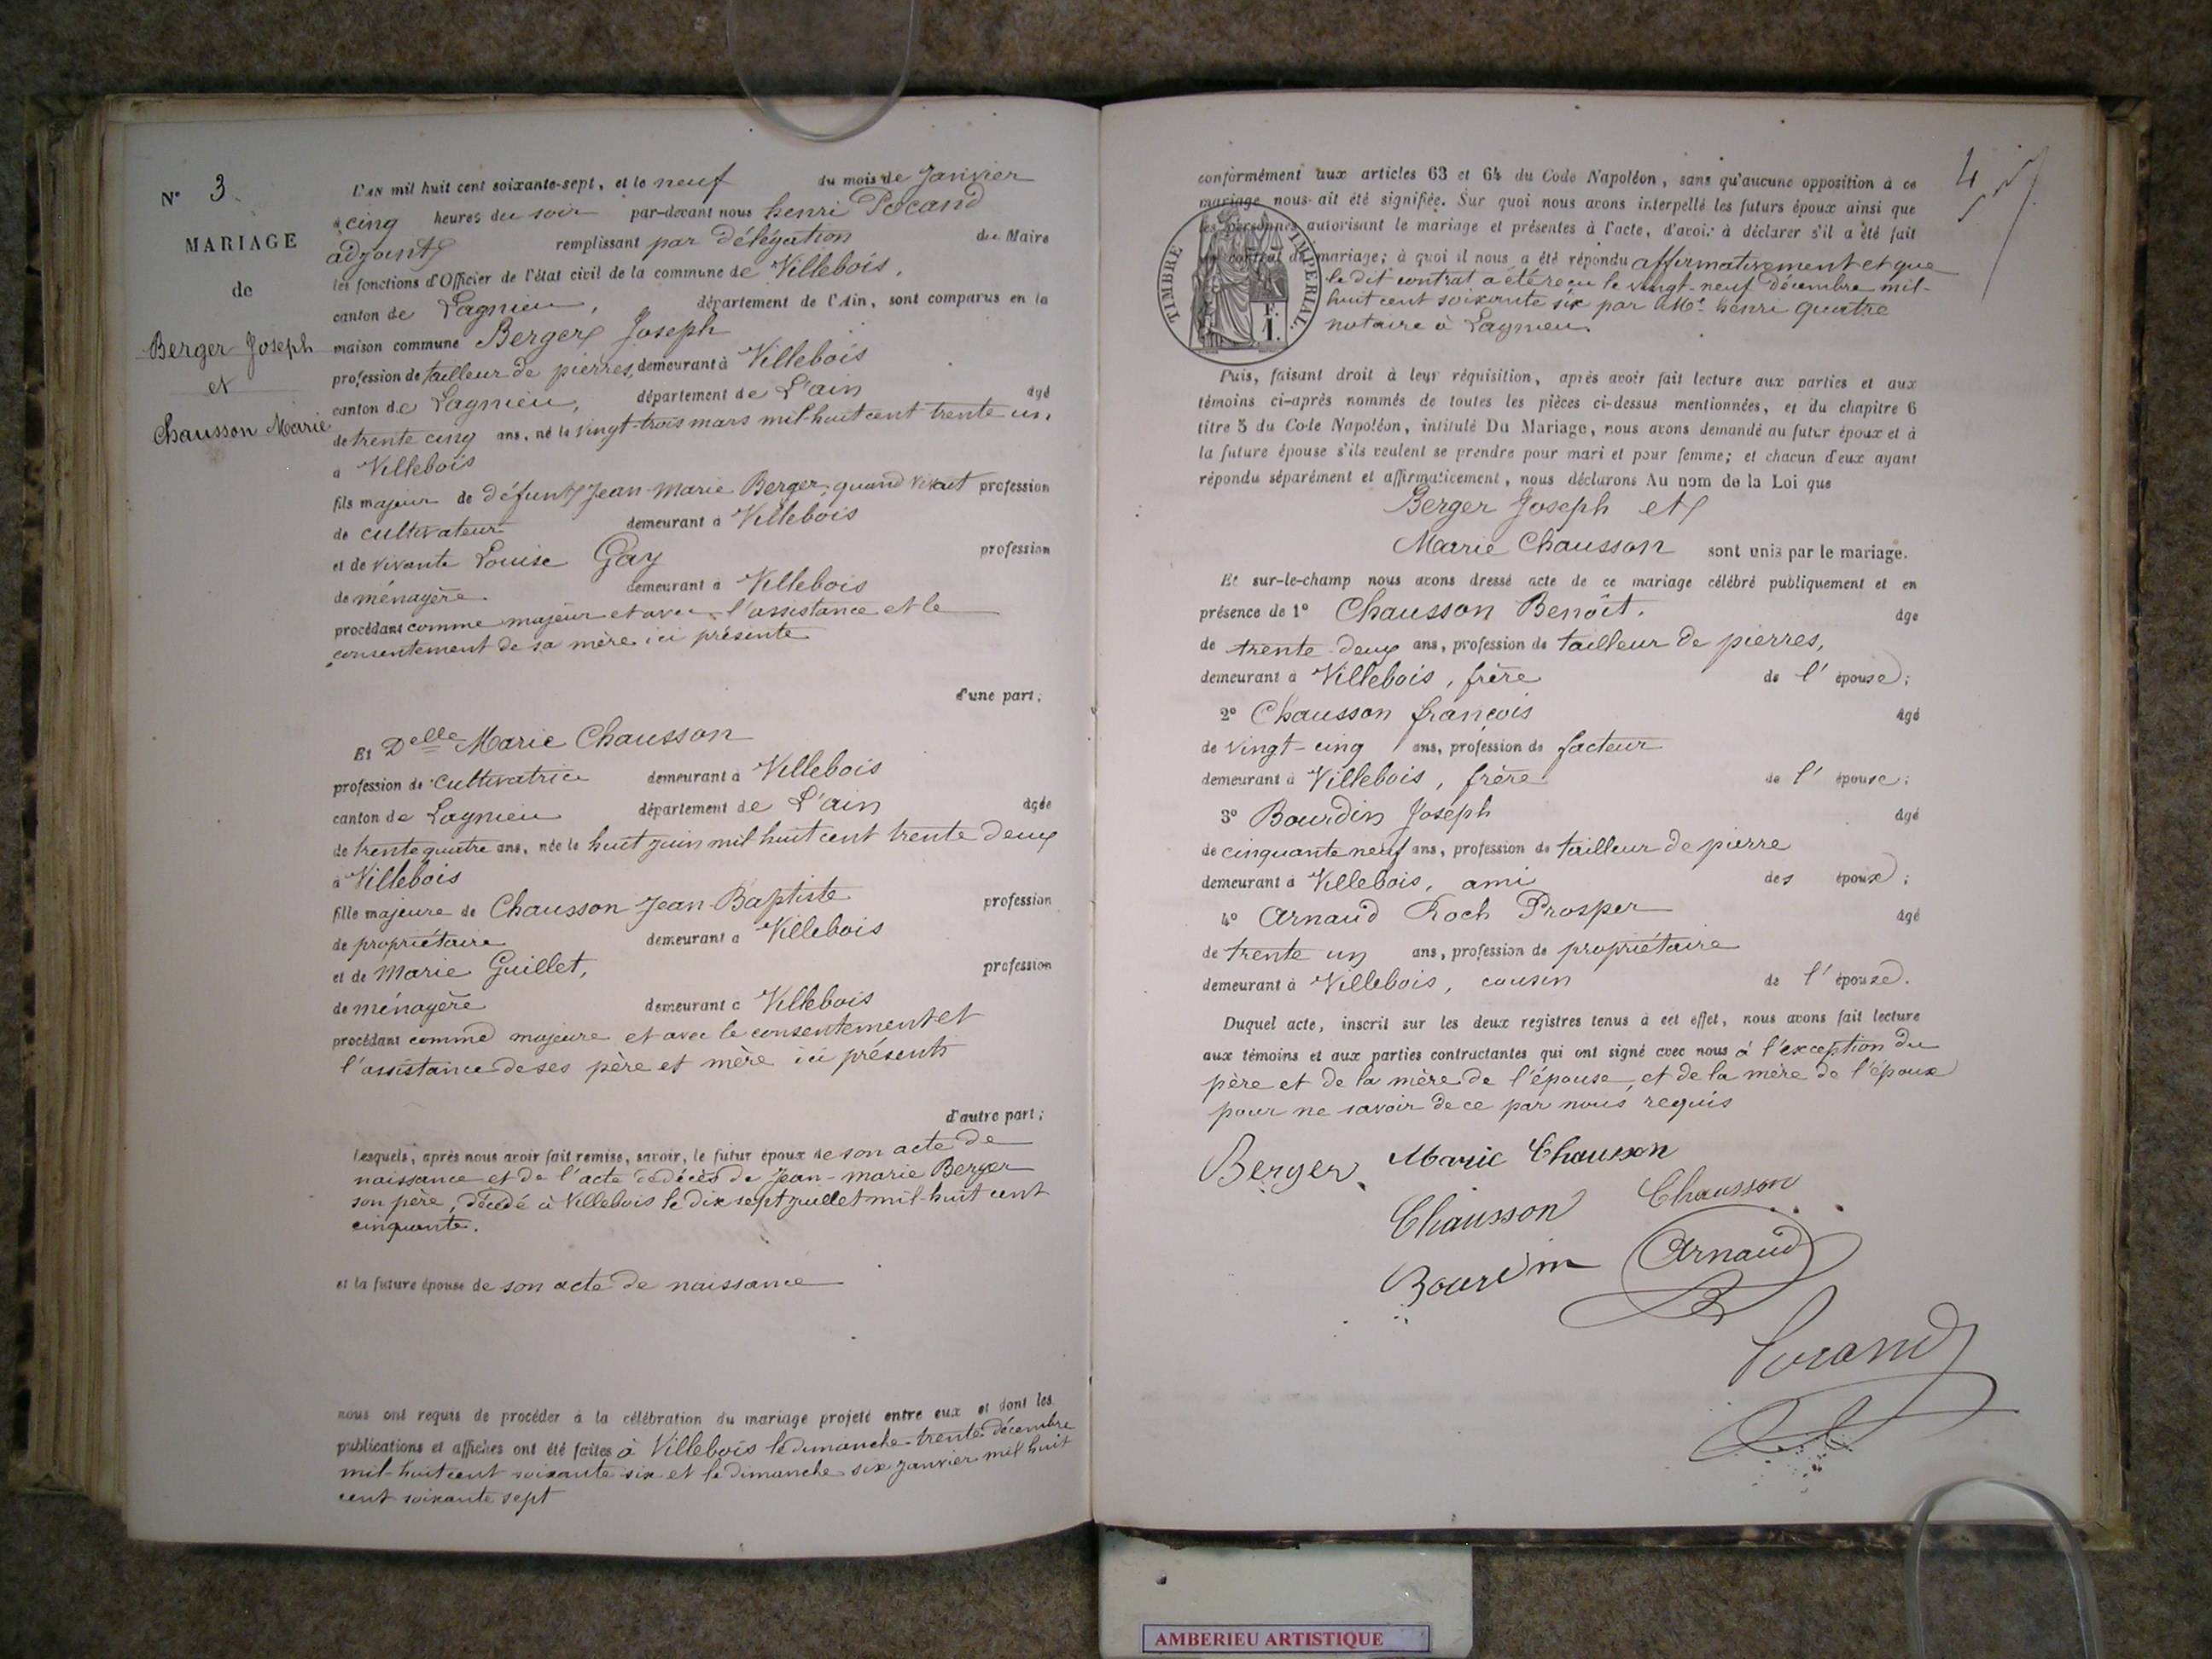 N° 3.
MARIAGE
de
Berger Joseph
et
Chausson Marie
L'AN mil huit cent soixante-sept, et le neuf du mois de Janvier
à cinq heures du soir par-devant nous henri Pocand
adjoint remplissant par délégation du Maire
les fonctions d'Officier de l'état civil de la commune de Villebois,
canton de Lagnieu, département de l'Ain, sont comparus en la
maison commune Berger Joseph
profession de tailleur de pierres, demeurant à Villebois
canton de Lagnieu, département de L'ain âgé
de trente cinq ans, né le vingt-trois mars mil-huit cent trente un,
à Villebois
fils majeur de défunt Jean-Marie Berger, quand vivait profession
de cultivateur demeurant à Villebois
et de vivante Louise Gay profession
de ménagère demeurant à Villebois
procédant comme majeur et avec l'assistance et le
consentement de sa mère ici présente
d'une part;
Et Delle Marie Chausson
profession de cultivatrice demeurant à Villebois
canton de Lagnieu département de L'ain âgée
de trente quatre ans, née le huit juin mil huit cent trente deux
à Villebois
fille majeure de Chausson Jean-Baptiste profession
de propriétaire demeurant à Villebois
et de Marie Guillet, profession
de ménagère demeurant à Villebois
procédant comme majeure et avec le consentement et
l'assistance de ses père et mère ici présents
d'autre part;
Lesquels, après nous avoir fait remise, savoir, le futur époux de son acte de
naissance et de l'acte de décès de Jean-Marie Berger
son père, décédé à Villebois le dix sept juillet mil-huit cent
cinquante.
et la future épouse de son acte de naissance
nous ont requis de procéder à la célébration du mariage projeté entre eux et dont les
publications et affiches ont été faites à Villebois le dimanche trente décembre
mil-huit cent soixante six et le dimanche six janvier mil huit
cent soixante sept
4
conformément aux articles 63 et 64 du Code Napoléon, sans qu'aucune opposition à ce
mariage nous ait été signifiée. Sur quoi nous avons interpellé les futurs époux ainsi que
les personnes autorisant le mariage et présentes à l'acte, d'avoir à déclarer s'il a été fait
un contrat de mariage; à quoi il nous a été répondu affirmativement et que
le dit contrat a été reçu le vingt-neuf décembre mil-
huit cent soixante six par Me henri Quatre
notaire à Lagnieu.
TIMBRE IMPERIAL
1 F.
Puis, faisant droit à leur réquisition, après avoir fait lecture aux parties et aux
témoins ci-après nommés de toutes les pièces ci-dessus mentionnées, et du chapitre 6
titre 5 du Code Napoléon, intitulé Du Mariage, nous avons demandé au futur époux et à
la future épouse s'ils veulent se prendre pour mari et pour femme; et chacun d'eux ayant
répondu séparément et affirmativement, nous déclarons Au nom de la Loi que
Berger Joseph et
Marie Chausson sont unis par le mariage.
Et sur-le-champ nous avons dressé acte de ce mariage célébré publiquement et en
présence de 1° Chausson Benoît. âgé
de trente deux ans, profession de tailleur de pierres,
demeurant à Villebois, frère de l'épouse;
2° Chausson françois âgé
de vingt-cinq ans, profession de facteur
demeurant à Villebois, frère de l'épouse;
3° Bourdin Joseph âgé
de cinquante neuf ans, profession de tailleur de pierre
demeurant à Villebois, ami des époux;
4° Arnaud Roch Prosper âgé
de trente un ans, profession de propriétaire
demeurant à Villebois, cousin de l'épouse.
Duquel acte, inscrit sur les deux registres tenus à cet effet, nous avons fait lecture
aux témoins et aux parties contractantes qui ont signé avec nous à l'exception du
père et de la mère de l'épouse, et de la mère de l'époux
pour ne savoir de ce par nous requis
Berger Marie Chausson
Chausson Chausson
Bourdin Arnaud
Pocand
AMBERIEU ARTISTIQUE